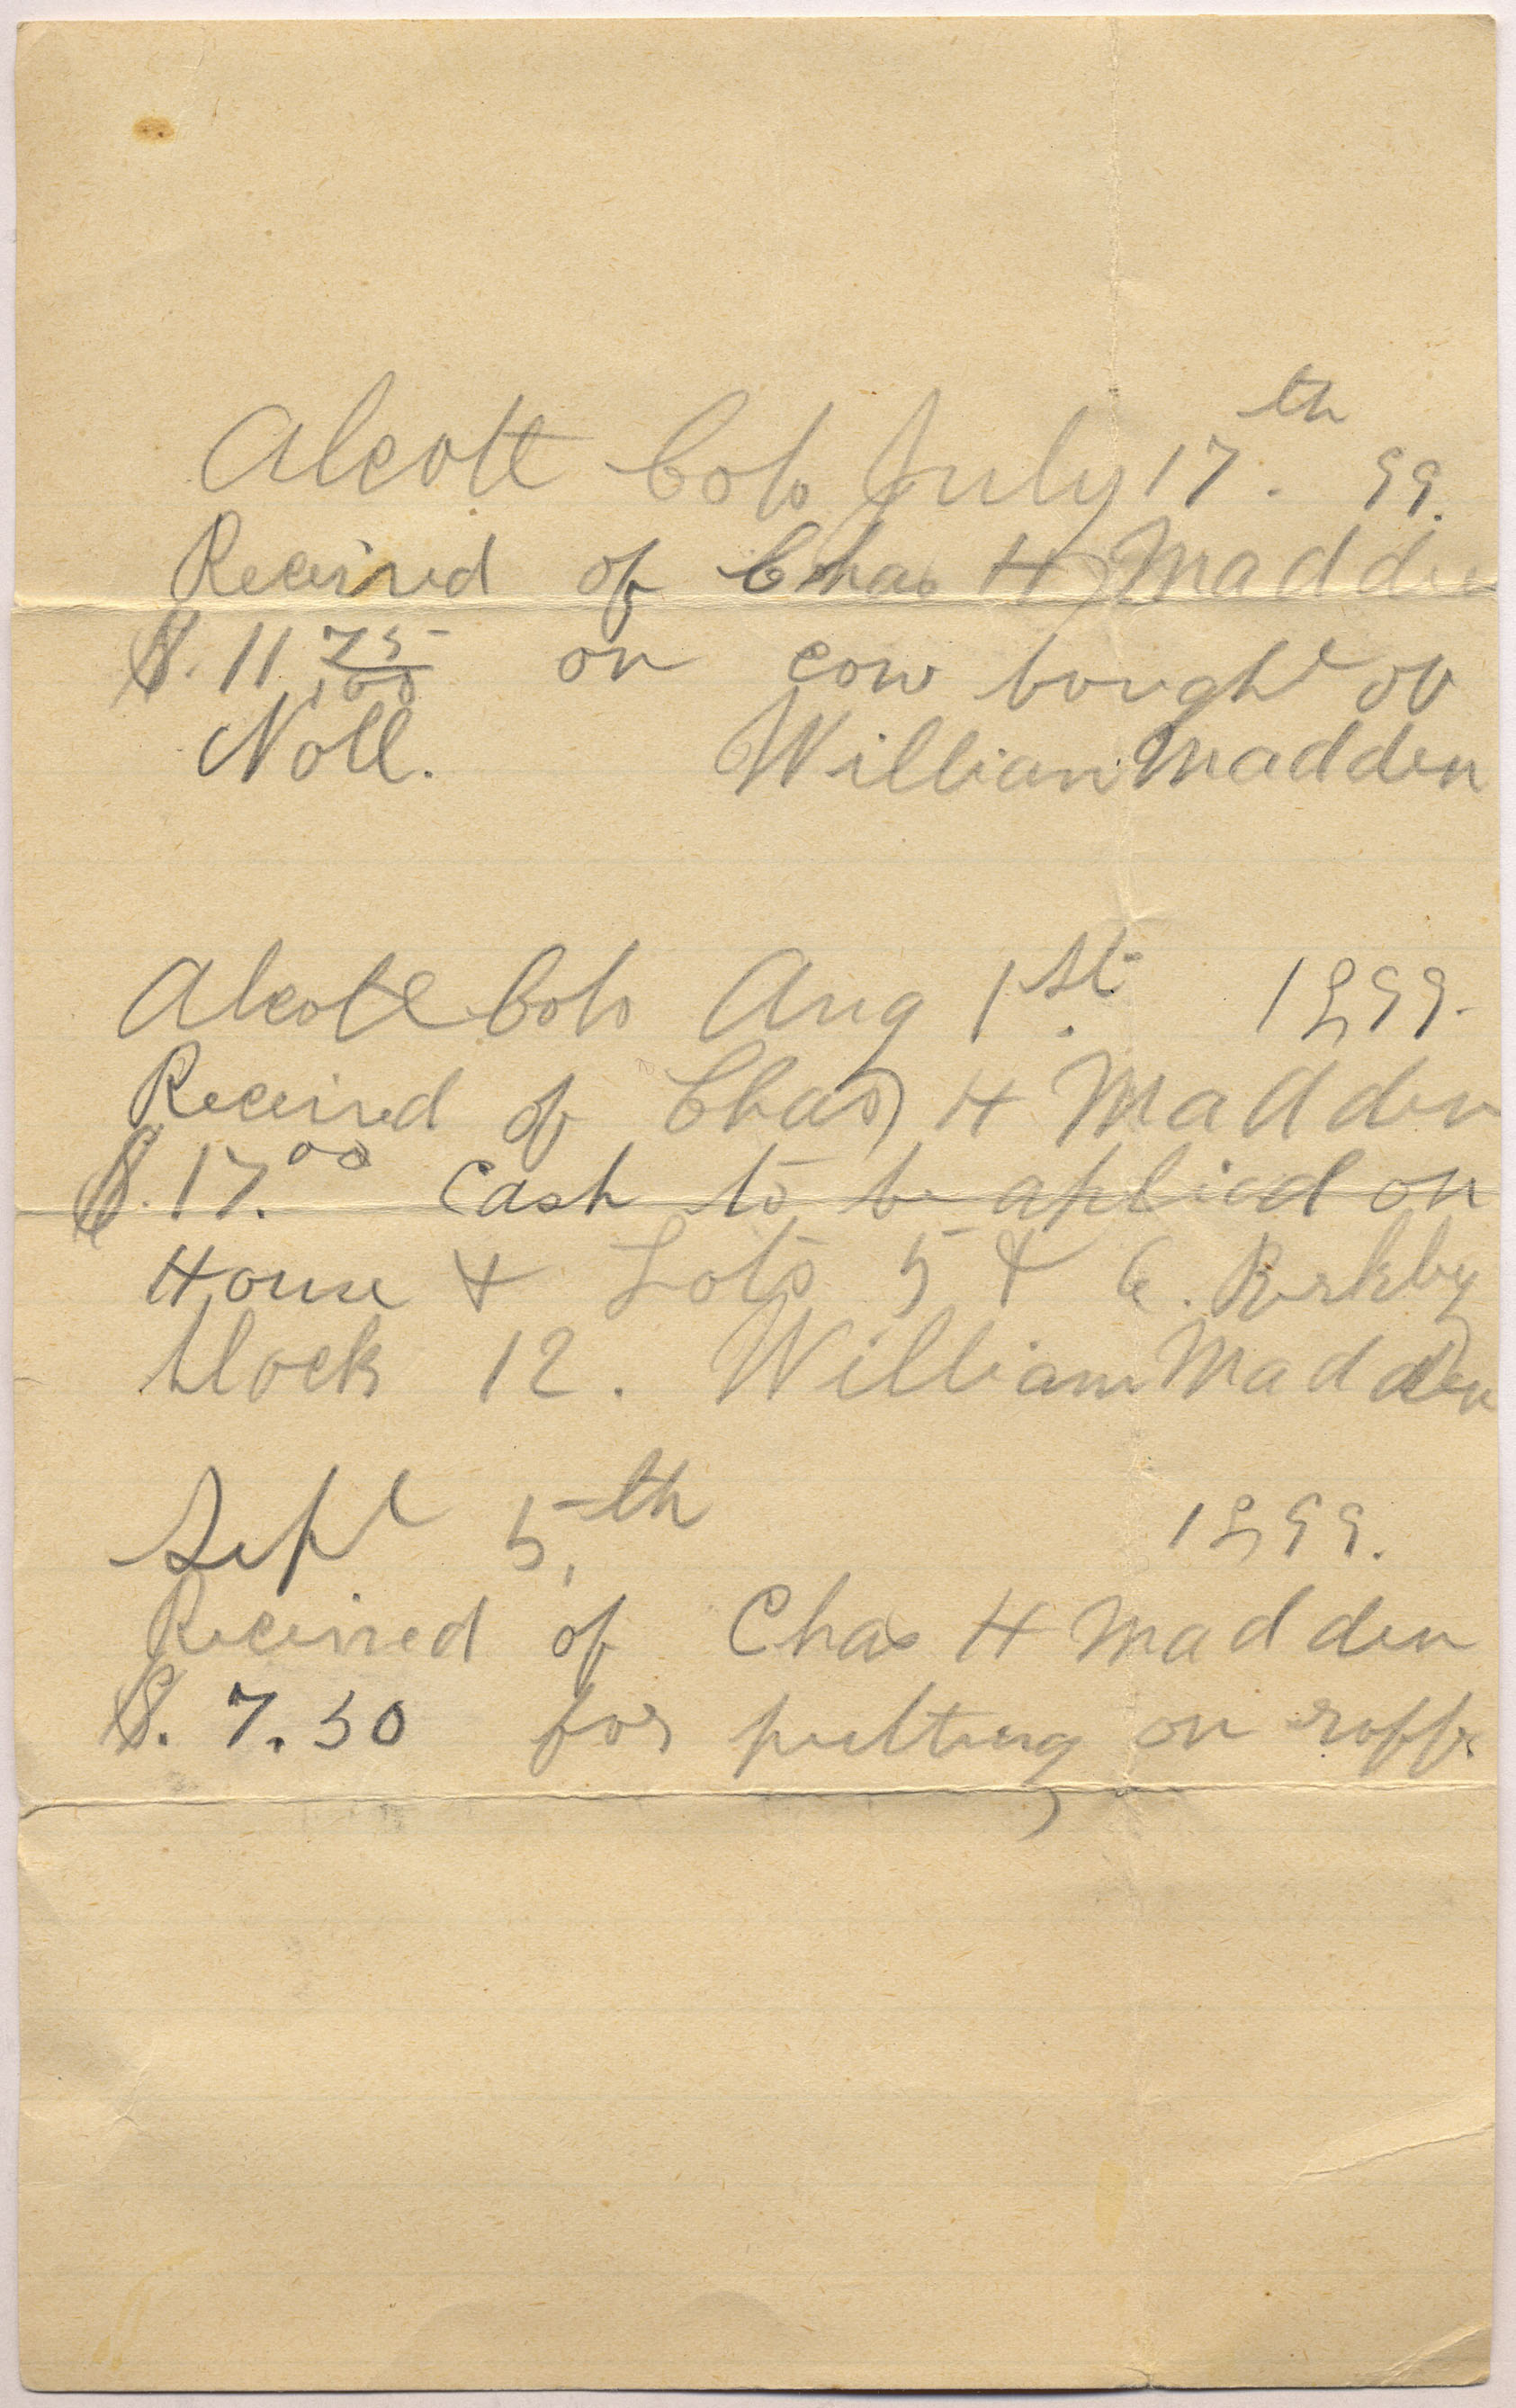 Alcott Colo July 17th. 99.
Received of Chas H Madden
$.11 75/100 on cow bought of
Noll. William Madden
Alcott Colo Aug 1st. 1899.
Received of Chas H Madden
$.17.00 Cash to be aplied on
House & Lots 5 & 6.
block 12. William Madden
Sept 5,th 1899.
Received of Chas H Madden
$. 7.50 for putting on roff.